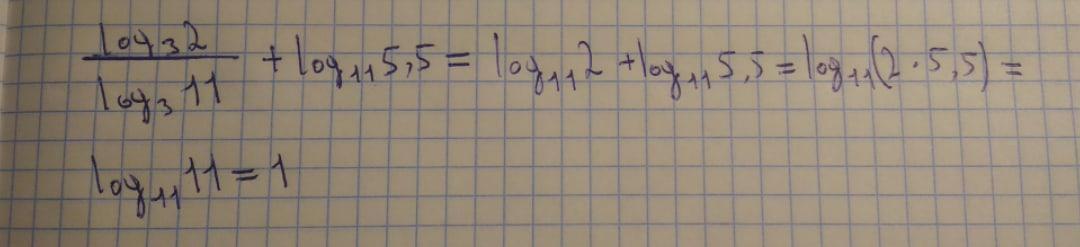 log₃2 / log₃11 + log₁₁5,5 = log₁₁2 + log₁₁5,5 = log₁₁(2·5,5) =
log₁₁11 = 1